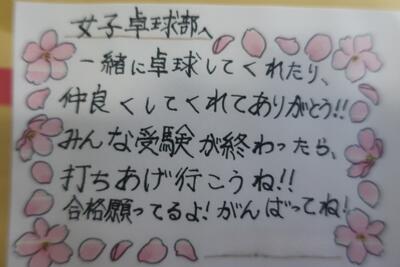 女子卓球部へ
一緒に卓球してくれたり、
仲良くしてくれてありがとう!!
みんな受験が終わったら、
打ちあげ行こうね!!
合格願ってるよ!がんばってね!